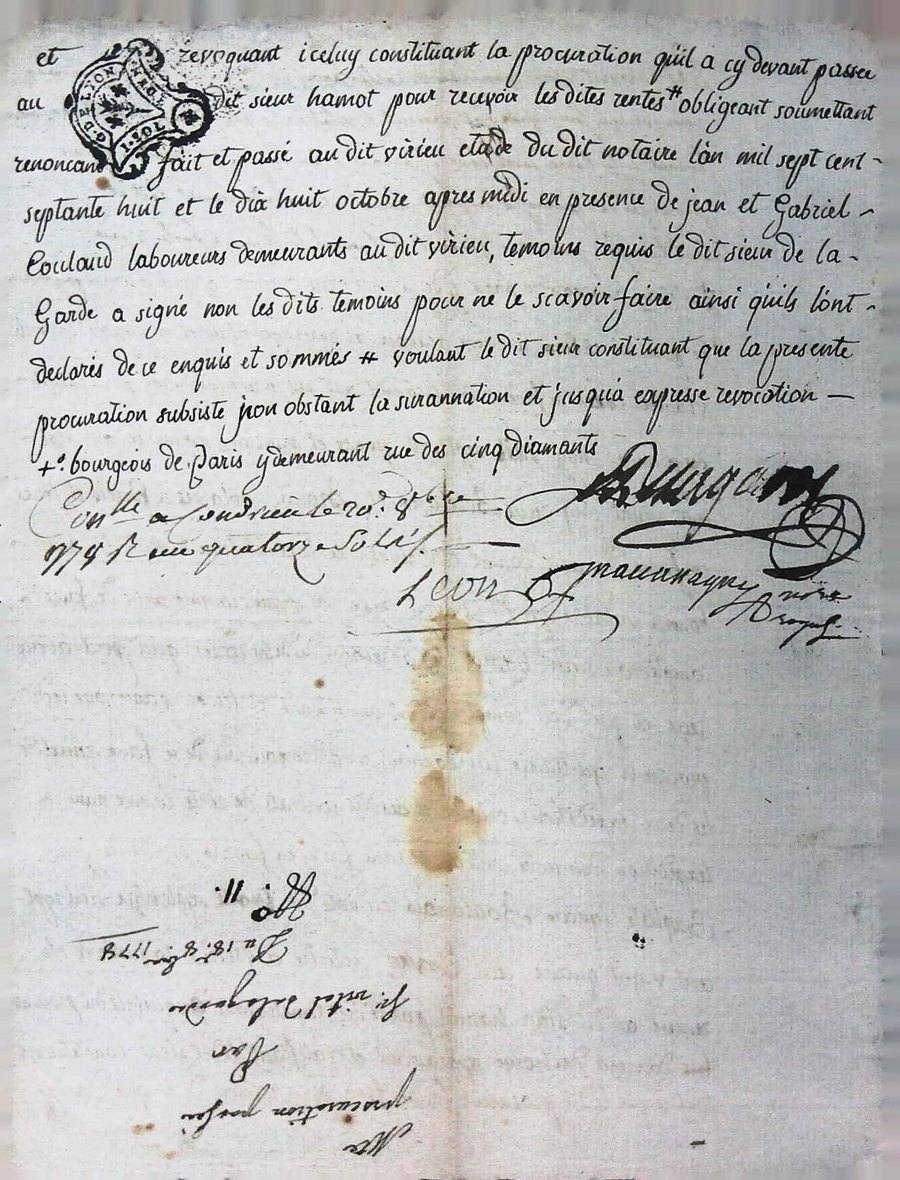 et revoquant iceluy constituant la procuration qu'il a cy devant passée
au dit sieur hamot pour recevoir les dites rentes # obligeant soumettant
renoncant fait et passé au dit virieu etude du dit notaire l'an mil sept cent -
septante huit et le dix huit octobre apres midi en presence de jean et Gabriel -
Coulaud laboureurs demeurants au dit virieu, temoins requis le dit sieur de la -
Garde a signé non les dits temoins pour ne le scavoir faire ainsi qu'ils l'ont -
declarés de ce enquis et sommés # voulant le dit sieur constituant que la presente
procuration subsiste non obstant la surannation et jusqu'a expresse revocation —
+o. bourgeois de Paris y demeurant rue des cinq diamants
G. DE LYON
1. SOL
Conlle a Condrieu le 20e. 8bre
1778 R quatorze Sols
Leon
Acte
procuration passée
Par
Sr. vital delagarde
Du 18e. 8bre 1778
No. 11.